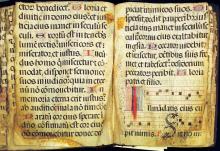 ctor benedicet. Gloria et
divitie in domo eius et iusti
cia eius manet in seculum secu
li. Exortum est in tenebris
lumen rectis misericors et mi
serator et iustus. Iocun
dus homo qui miseretur et
modat disponet sermones su
os in iudicio quia in eternum
non commovebitur. In
memoria eterna erit iustus
ab auditione mala non timebit
Paratum cor eius sperare i
domino confirmatum est cor eius
non commovebitur donec
spiciat inimicos suos. D
ispersit dedit pauperibus iu
sticia eius manet in seculum
seculi cornu eius exaltabitur
in gloria. Peccator vide
bit et irascetur dentibus suis
fremet et tabescet desiderium
peccatorum peribit. Gloria
In mandatis eius
nimis.